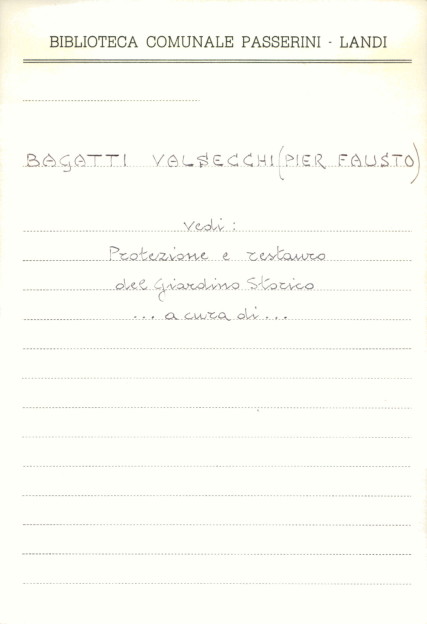 BIBLIOTECA COMUNALE PASSERINI - LANDI
BAGATTI VALSECCHI (PIER FAUSTO)
vedi:
Protezione e restauro
del Giardino Storico
... a cura di ...